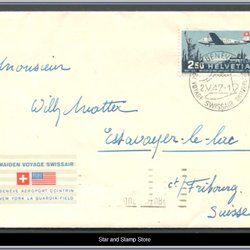 Monsieur
Willy Matter
Estavayer-le-lac
ct Fribourg
Suisse
2.50 HELVETIA
GENÈVE
2.V.47-17
SWISSAIR
MAIDEN VOYAGE SWISSAIR
GENÈVE AÉROPORT COINTRIN
NEW YORK LA GUARDIA-FIELD
Star and Stamp Store